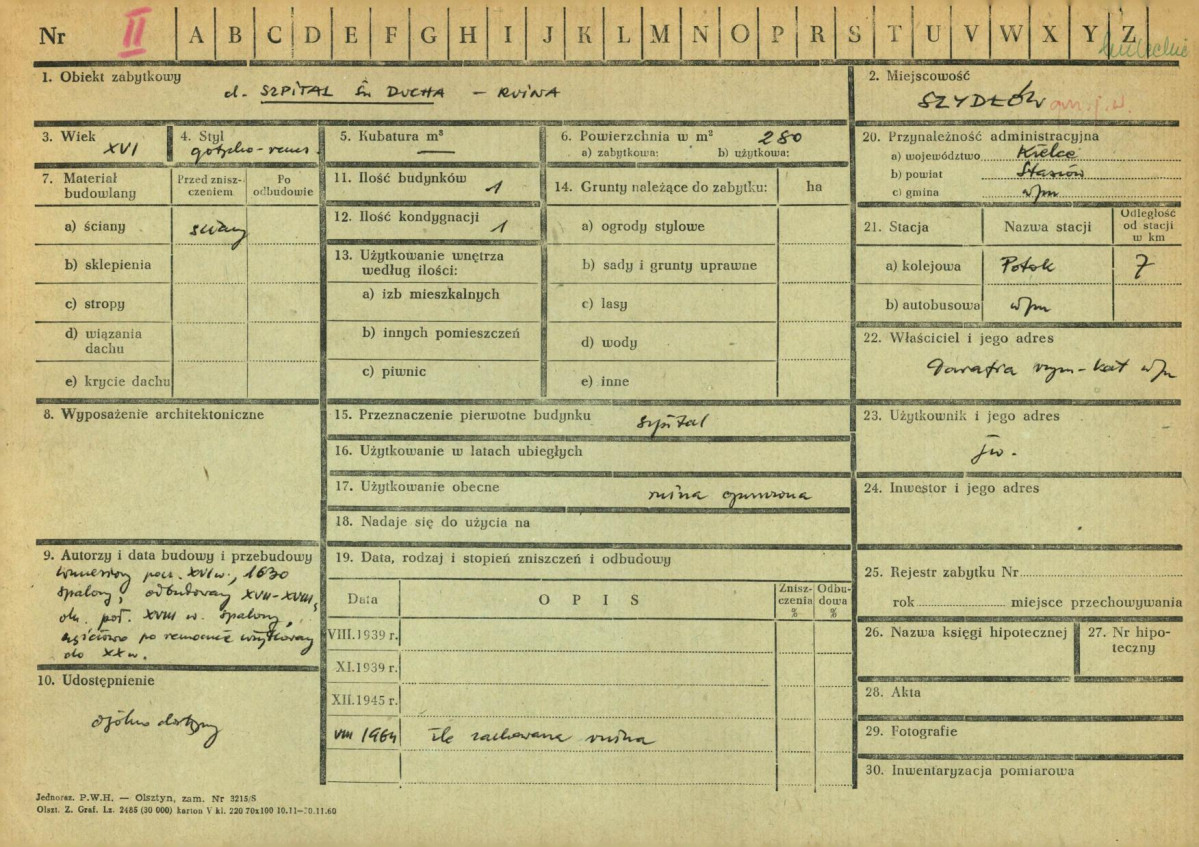 Nr II A B C D E F G H I J K L M N O P R S T U V W X Y Z
1. Obiekt zabytkowy
d. SZPITAL św DUCHA – RUINA
2. Miejscowość
SZYDŁÓW
3. Wiek
XVI
4. Styl
gotycko-renes.
5. Kubatura m³
—
6. Powierzchnia w m² 280
a) zabytkowa: b) użytkowa:
7. Materiał budowlany
Przed zniszczeniem
Po odbudowie
a) ściany
b) sklepienia
c) stropy
d) wiązania dachu
e) krycie dachu
11. Ilość budynków
1
12. Ilość kondygnacji
1
13. Użytkowanie wnętrza według ilości:
a) izb mieszkalnych
b) innych pomieszczeń
c) piwnic
14. Grunty należące do zabytku: ha
a) ogrody stylowe
b) sady i grunty uprawne
c) lasy
d) wody
e) inne
20. Przynależność administracyjna
a) województwo Kielce
b) powiat Staszów
c) gmina w/m
21. Stacja
Nazwa stacji
Odległość od stacji w km
a) kolejowa Potok 7
b) autobusowa w/m
22. Właściciel i jego adres
Parafia rzym-kat w/m
8. Wyposażenie architektoniczne
15. Przeznaczenie pierwotne budynku szpital
16. Użytkowanie w latach ubiegłych
17. Użytkowanie obecne ruina opuszczona
18. Nadaje się do użycia na
23. Użytkownik i jego adres
jw.
24. Inwestor i jego adres
9. Autorzy i data budowy i przebudowy
wzniesiony pocz. XVI w., 1630
spalony, odbudowany XVII-XVIII,
ok. poł. XVIII w. spalony,
częściowo po remoncie użytkowany
do XX w.
19. Data, rodzaj i stopień zniszczeń i odbudowy
Data
O P I S
Zniszczenia %
Odbudowa %
VIII.1939 r.
XI.1939 r.
XII.1945 r.
VIII 1964 źle zachowana ruina
10. Udostępnienie
ogólno dostępny
25. Rejestr zabytku Nr
rok miejsce przechowywania
26. Nazwa księgi hipotecznej
27. Nr hipoteczny
28. Akta
29. Fotografie
30. Inwentaryzacja pomiarowa
Jednoraz. P.W.H. — Olsztyn, zam. Nr 3215/S
Olszt. Z. Graf. Lz. 2485 (30 000) karton V kl. 220 70x100 10.11—30.11.60